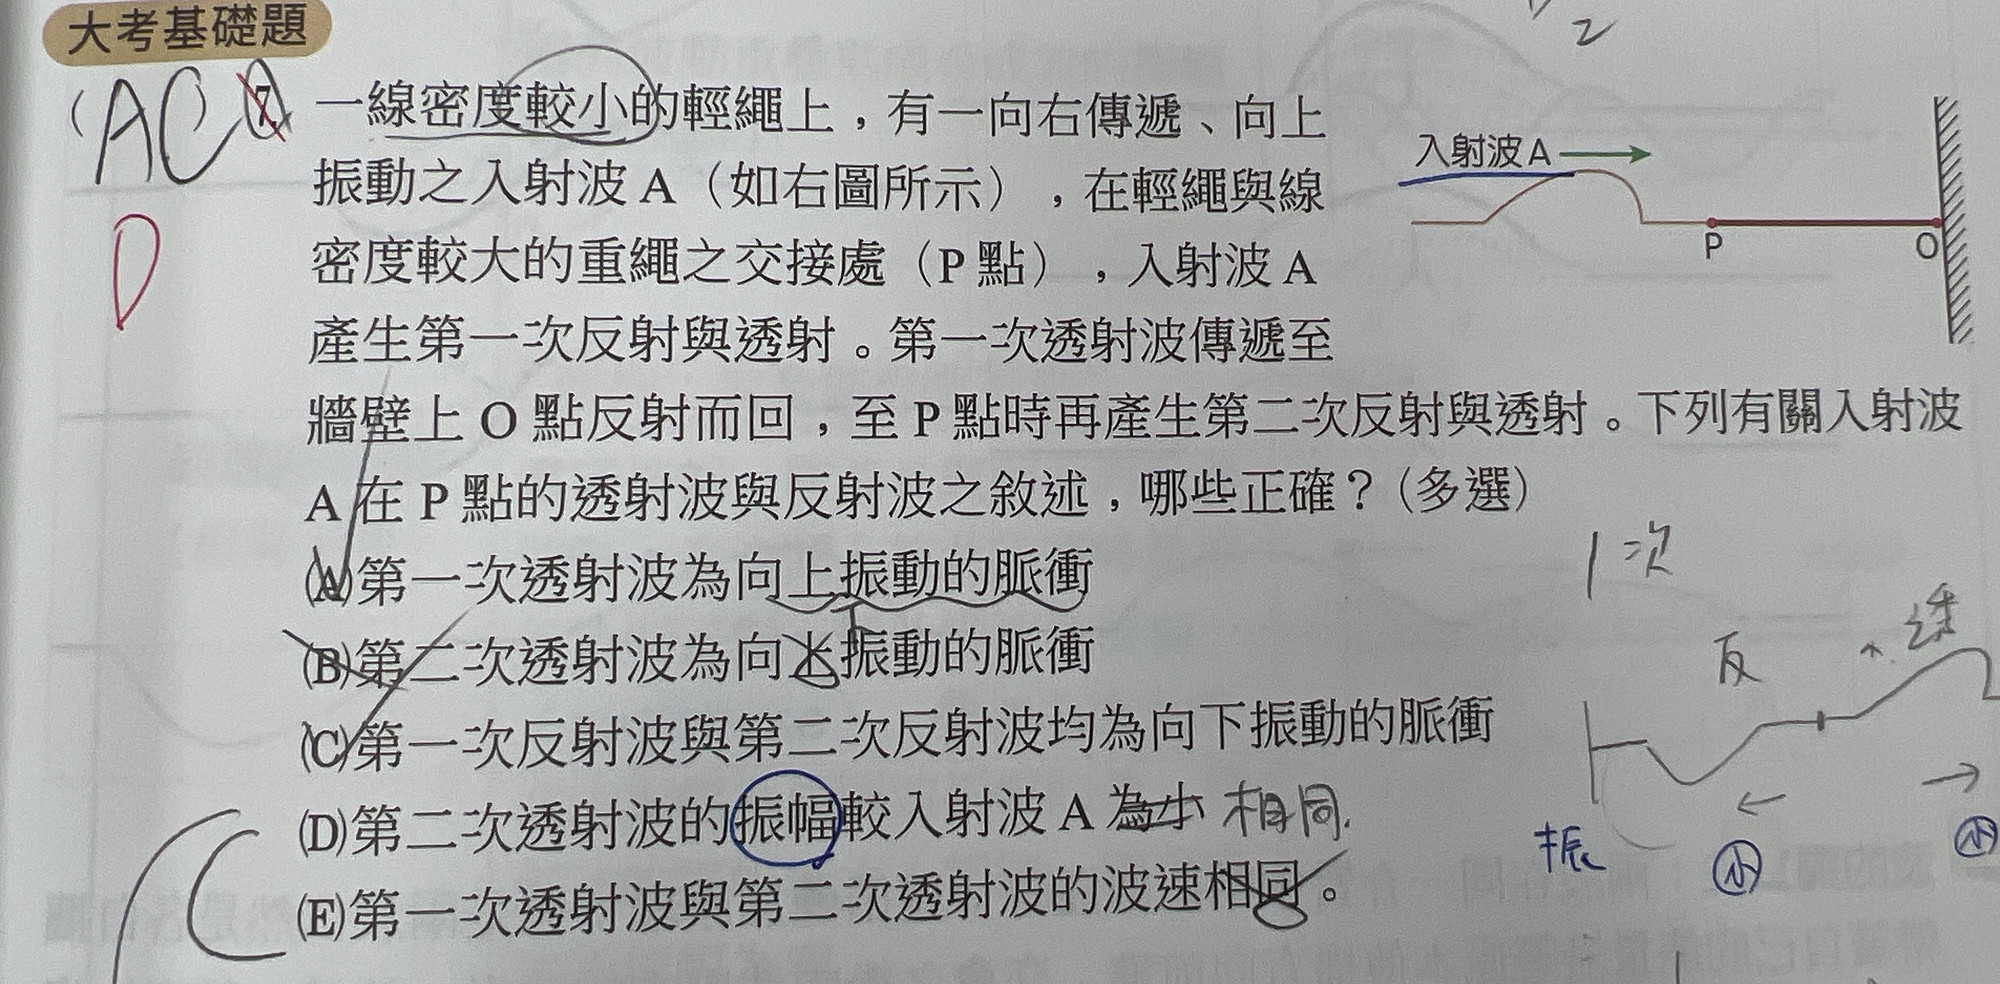 大考基礎題
2
(AC)
7 一線密度較小的輕繩上，有一向右傳遞、向上
振動之入射波 A（如右圖所示），在輕繩與線
密度較大的重繩之交接處（P 點），入射波 A
產生第一次反射與透射。第一次透射波傳遞至
牆壁上 O 點反射而回，至 P 點時再產生第二次反射與透射。下列有關入射波
A 在 P 點的透射波與反射波之敘述，哪些正確？（多選）
入射波A
P
O
D
(A)第一次透射波為向上振動的脈衝
(B)第二次透射波為向上振動的脈衝
下
(C)第一次反射波與第二次反射波均為向下振動的脈衝
(D)第二次透射波的振幅較入射波 A 為小 相同.
(E)第一次透射波與第二次透射波的波速相同。
1次
反
透
振
小
小